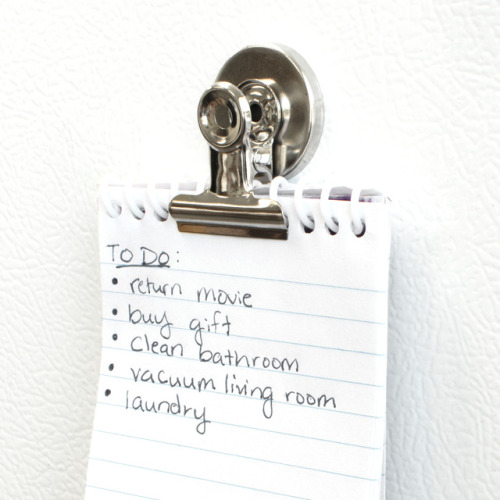 To Do:
• return movie
• buy gift
• clean bathroom
• vacuum living room
• laundry